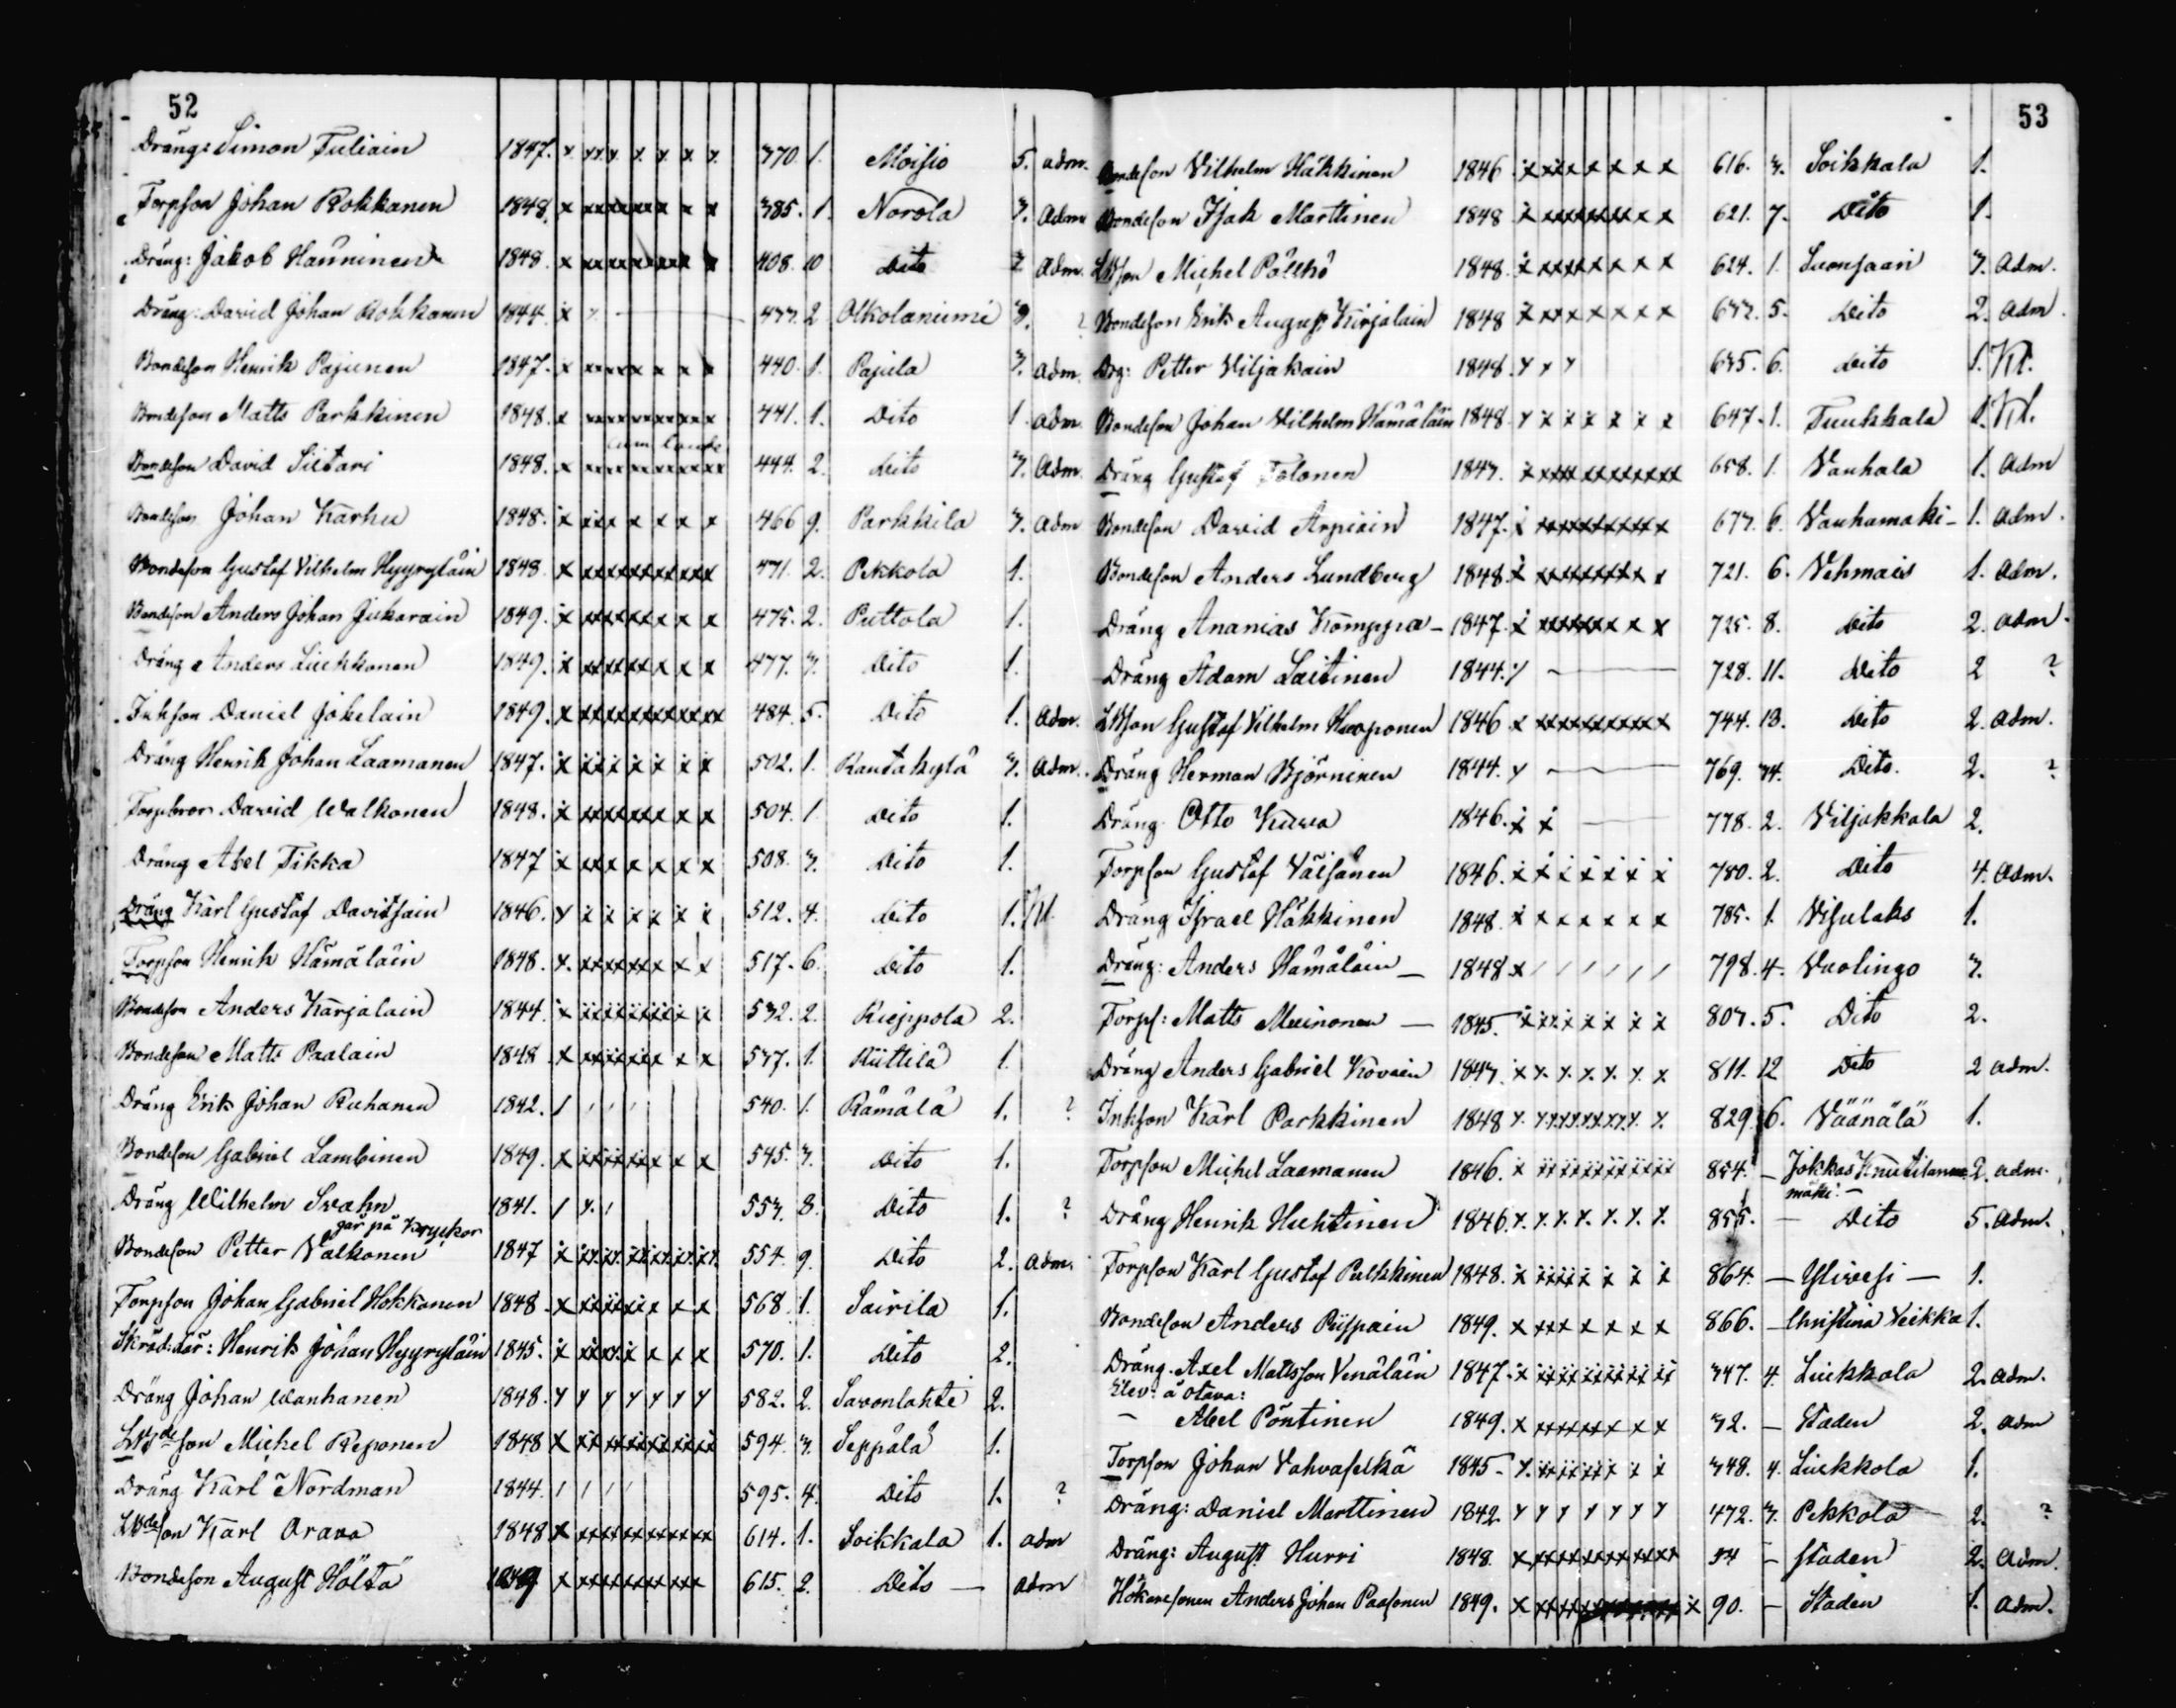 52
Dräng: Simon Tuliain 1847. x xxx x x x x 370 1. Moisio 5. adm.
Torpson Johan Rokkanen 1848. x xxxxxxx x x 385. 1. Norola 3. Adm
Dräng: Jakob Hänninen 1848. x xxxxxxxx x 408. 10 Dito 2 Adm.
Dräng: David Johan Rokkanen 1844. x 433. 2 Olkolaniemi 3. ?
Bondeson Henrik Pajunen 1847. x xxxxx x x x 440. 1. Pajula 3. Adm.
Bondeson Matts Parkkinen 1848. x xxxxxxxxxx 441. 1. Dito 1. Adm.
cum laude
Bondeson David Siitari 1848. x xxxxxxxxxxx 444. 2. Dito 3. Adm.
Bondeson Johan Karhu 1848. x xxx x x x x 466 9. Parkkila 3. Adm
Bondeson Gustaf Vilhelm Hyyryläin 1848. x xxxxxxxxxx 471. 2. Pekkola 1.
Bondeson Anders Johan Jukarain 1849. x xxxxxx x x x 475. 2. Puttola 1.
Dräng Anders Liukkonen 1849. x xxxxxx x x x 477. 3. Dito 1.
Inhson Daniel Jokelain 1849. x xxxxxxxxxxx 484. 5. Dito 1. Adm.
Dräng Henrik Johan Laamanen 1847. x xxx x x x x 502. 1. Rantakylä 3. Adm.
Torpbror David Walkonen 1848. x xxxxxxx x x 504. 1. Dito 1.
Dräng Abel Tikka 1847 x xxx x x x x 508. 3. Dito 1.
Dräng Karl Gustaf Davidsain 1846. x x x x x x 512. 4. Dito 1.
Torpson Henrik Hämäläin 1848. x. xxxxxxx x x 517. 6. Dito 1.
Bondeson Anders Karjalain 1844. x xxxxxxxx x 532. 2. Rieppola 2.
Bondeson Matts Paalain 1848 x xxxxxxx x x 537. 1. Riittilä 1.
Dräng Erik Johan Ruhanen 1842. / / / / 540. 1. Rämälä 1. ?
Bondeson Gabriel Lambinen 1849. x xxxxxx x x x 545. 3. Dito 1.
Dräng Wilhelm Svahn 1841. / x. / 553. 8. Dito 1. ?
går på Kryckor
Bondeson Petter Valkonen 1847 x xx. xx. xx xx. xx. xx. 554. 9. Dito 2. Adm.
Torpson Johan Gabriel Hokkanen 1848 x xxxxx x x x 568. 1. Sairila 1.
Skräd:där: Henrik Johan Hyyryläin 1845. x xxxxx x x x 570. 1. Dito 2.
Dräng Johan Wanhanen 1848. x x x x x x x 582. 2. Savonlahti 2.
LBdeson Michel Reponen 1848 x xxxxxxxxxxx 594. 3. Seppälä 1.
Dräng Karl Nordman 1844. / / / / 595. 4. Dito 1. ?
LBdeson Karl Orava 1848 x xxxxxxxxxx 614. 1. Soikkala 1. adm
Bondeson August Hölttä 1849 x xxxxxxxxxx 615. 2. Dito — adm
53
Bondeson Vilhelm Häkkinen 1846. x xxx x x x x x 616. 3. Soikkala 1.
Bondeson Isak Marttinen 1848 x xxxxxxxx x x 621. 7. Dito 1.
LBson Michel Pöllhö 1848. x xxxxx x x x 624. 1. Suonsaari 3. Adm.
Bondeson Erik August Kirjalain 1848 x xxx x x x x x 632. 5. Dito 2. Adm.
Drg: Petter Viljakain 1848. x x x 635. 6. Dito 1.
Bondeson Johan Vilhelm Hämäläin 1848. x x x x x x x 647. 1. Tuukkala 1.
Dräng Gustaf Tolonen 1843. x xxxxxxxxxxx 658. 1. Vanhala 1. Adm
Bondeson David Arpiain 1847. x xxxxxxxxxx 673. 6. Vanhamäki 1. Adm.
Bondeson Anders Lundberg 1848. x xxxxxxxxx x 721. 6. Vehmais 1. Adm.
Dräng Ananias Komppa — 1847. x xxxxxxx x x 725. 8. Dito 2. Adm.
Dräng Adam Laitinen 1844. / — 728. 11. Dito 2 ?
LBson Gustaf Vilhelm Huoponen 1846 x xxxxxxxxxx 744. 13. Dito 2. Adm.
Dräng Herman Björninen 1844. x — 769. 34. Dito. 2. ?
Dräng Otto Kurva 1846. x x — 778. 2. Viljakkala 2.
Torpson Gustaf Väisänen 1846. x x x x x x x 780. 2. Dito 4. Adm.
Dräng Israel Häkkinen 1848. x x x x x x x 785. 1. Visulaks 1.
Dräng: Anders Hämäläin — 1848 x / / / / / / 798. 4. Vuolingo 3.
Torps: Matts Muinonen — 1845. x xxx x x x x 803. 5. Dito 2.
Dräng Anders Gabriel Kovain 1843. x x. x. x. x. x. x 811. 12 Dito 2 adm.
Inhson Karl Parkkinen 1848 x. xxxxxxxxx. x. 829. 6. Väänälä 1.
Torpson Michel Laamanen 1846. x xxxxxxxxxx 854. — Jokkas Knuutilanmäki — 2. adm.
Dräng Henrik Huhtinen 1846. x. x. x. x. x. x. x. 855. — Dito 5. Adm.
Torpson Karl Gustaf Pulkkinen 1848. x xxxx x x x 864. — Yliwesi — 1.
Bondeson Anders Piispain 1849. x xxx x x x x 866. — Christina Veikka 1.
Dräng. Axel Mattsson Venäläin 1847. x xxxxxxxxxx 347. 4. Liukkola 2. adm.
Elev: å Otava:
— Abel Pöntinen 1849. x xxxxxxx x x 32. — Staden 2. adm
Torpson Johan Vahvaselkä 1845 — x. xxxxxxx x x 348. 4. Liukkola 1.
Dräng: Daniel Marttinen 1842. x x x x x x x 472. 3. Pekkola 2. ?
Dräng: August Hurri 1848. x xxxxxxxxxxx 54 — Staden 2. Adm.
Hökaresonen Anders Johan Paasonen 1849. x xxxx x 90. — Staden 1. Adm.